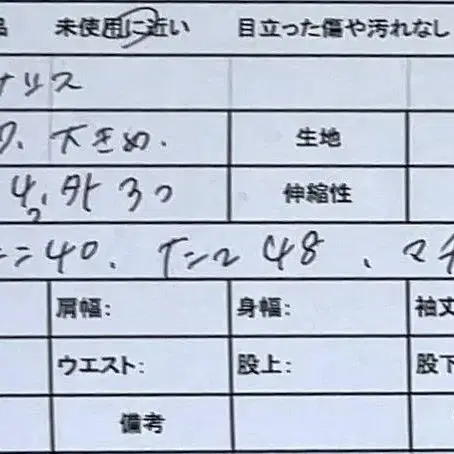 品 未使用に近い 目立った傷や汚れなし
ナリス
大きめ. 生地
4, 外 3つ 伸縮性
=40. たて 48 、マチ
肩幅: 身幅: 袖丈
ウエスト: 股上: 股下
備考